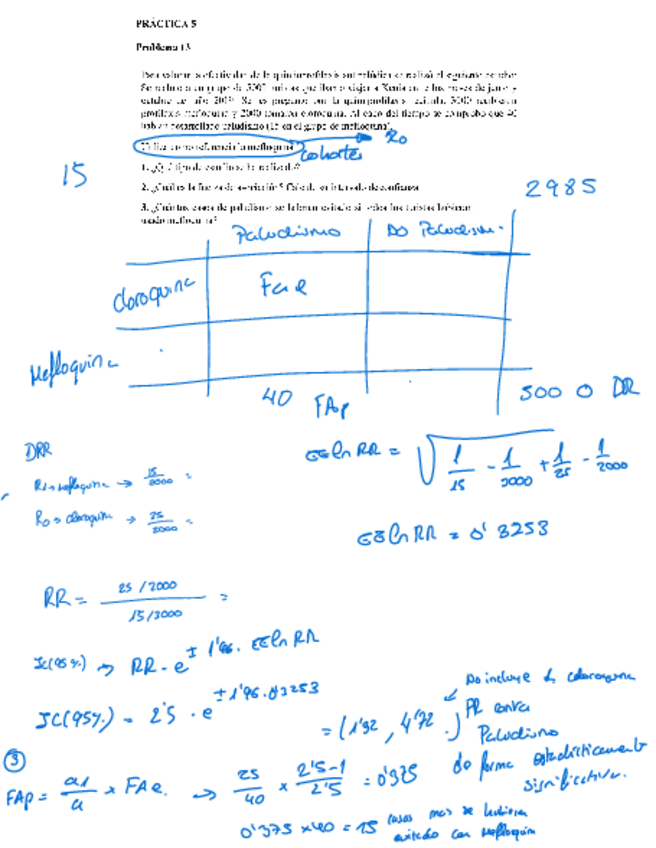 PRÁCTICA 5
Problema 13
Para valorar la efectividad de la quimioprofilaxis antipalúdica se realizó el siguiente estudio:
Se reclutó a un grupo de 5000 turistas que iban a viajar a Kenia entre los meses de junio y
octubre de año 2019. Se les preguntó por la quimioprofilaxis 3000 recibieron
profilaxis mefloquina y 2000 tomaron cloroquina. Al cabo del tiempo se comprobó que 40
habían desarrollado paludismo (15 en el grupo de mefloquina).
Utilice como referencia la mefloquina
Ro
cohortes
1. ¿Qué tipo de estudio se ha realizado?
15
2. ¿Cuál es la fuerza de asociación? Calcule su intervalo de confianza
2985
3. ¿Cuántos casos de paludismo se habrían evitado si todos los turistas hubieran
usado mefloquina?
Paludismo No Paludism.
Cloroquina FAe
Mefloquina
40 FAp 5000 DR
DRR
R1→mefloquina → 15/3000 =
R0→ cloroquina → 25/2000 =
EE ln RR = √ 1/15 - 1/3000 + 1/25 - 1/2000
EE ln RR = 0'3253
RR = 25/2000 / 15/3000 =
IC(95%) → RR · e ± 1'96 · EE ln RR
IC(95%) = 2'5 · e ± 1'96 · 0'3253 = (1'32, 4'72)
No incluye 1, cloroquina
FR contra
Paludismo
de forma estadísticamente
significativa.
③
FAp = a1/a × FAe → 25/40 × 2'5-1/2'5 = 0'375
0'375 × 40 = 15 casos mas se hubieran
evitado con mefloquina